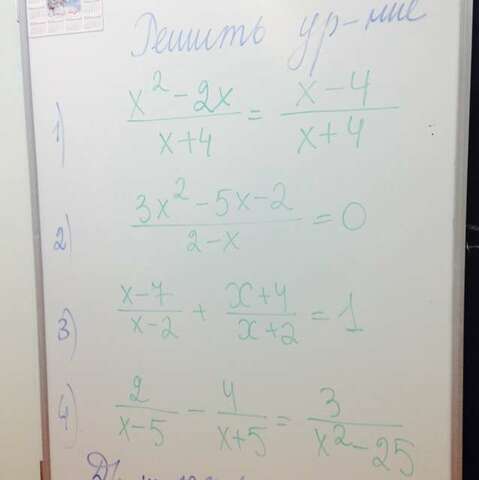 Решить ур-ние
1) (x² - 2x)/(x+4) = (x-4)/(x+4)
2) (3x² - 5x - 2)/(2-x) = 0
3) (x-7)/(x-2) + (x+4)/(x+2) = 1
4) 2/(x-5) - 4/(x+5) = 3/(x² - 25)